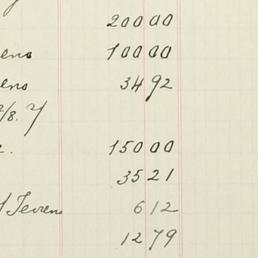 20000
ens 10000
ens 3492
2/8. 7
e. 15000
3521
Jevens 612
1279